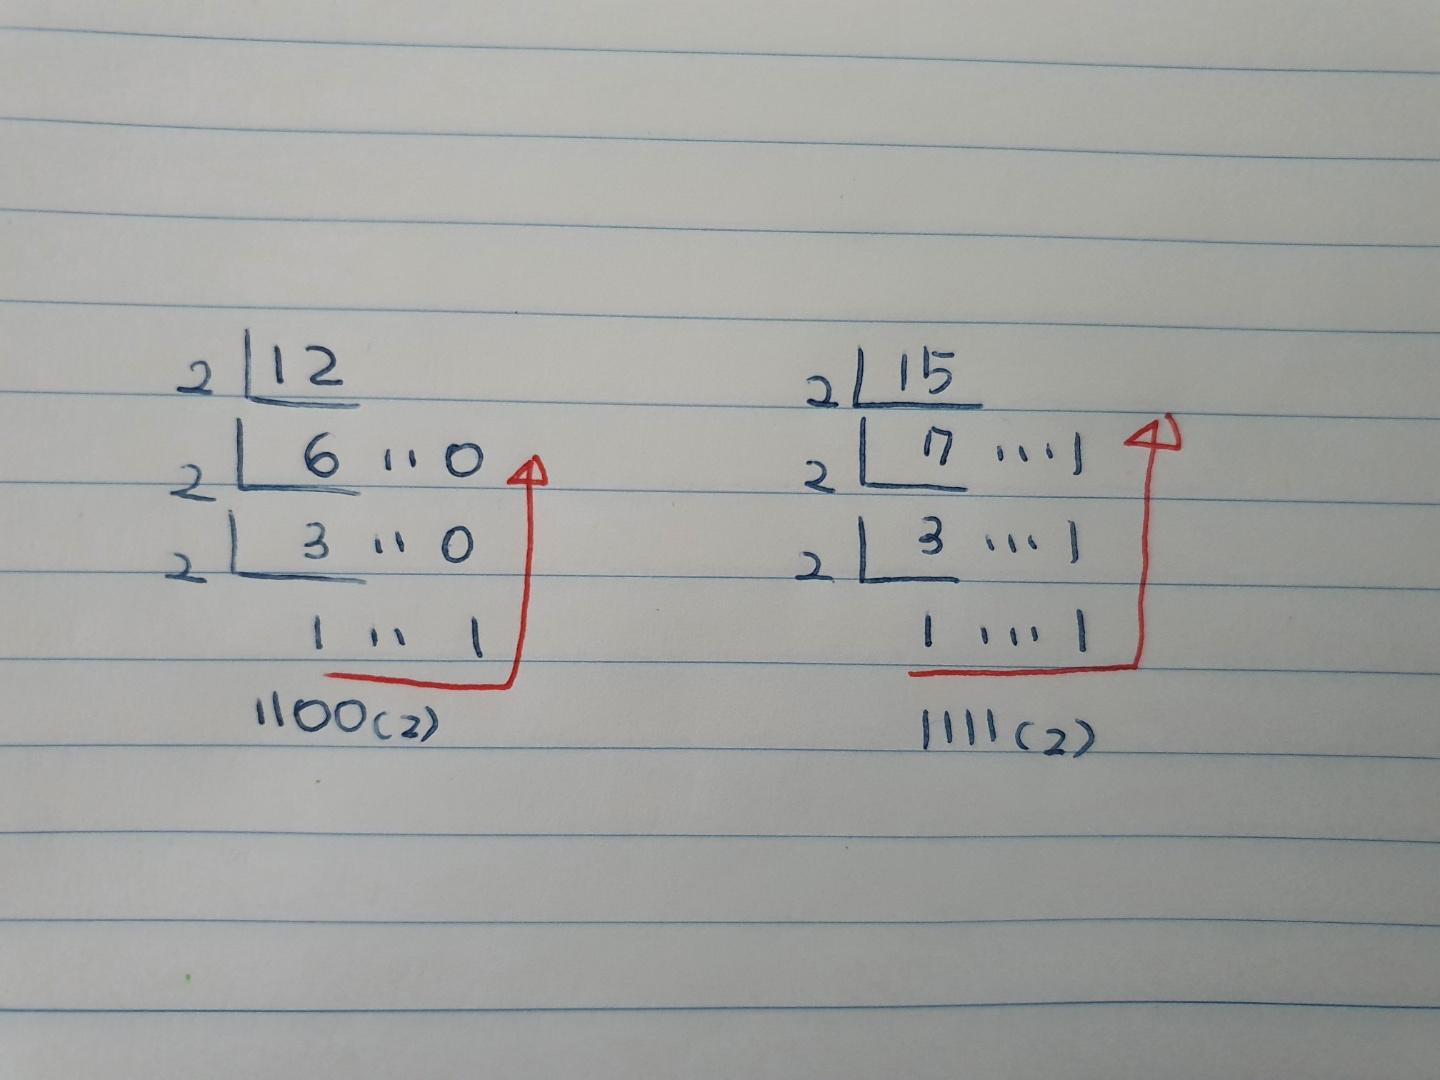 2 12
2 6 ... 0
2 3 ... 0
1 ... 1
1100(2)
2 15
2 7 .... 1
2 3 .... 1
1 .... 1
1111(2)